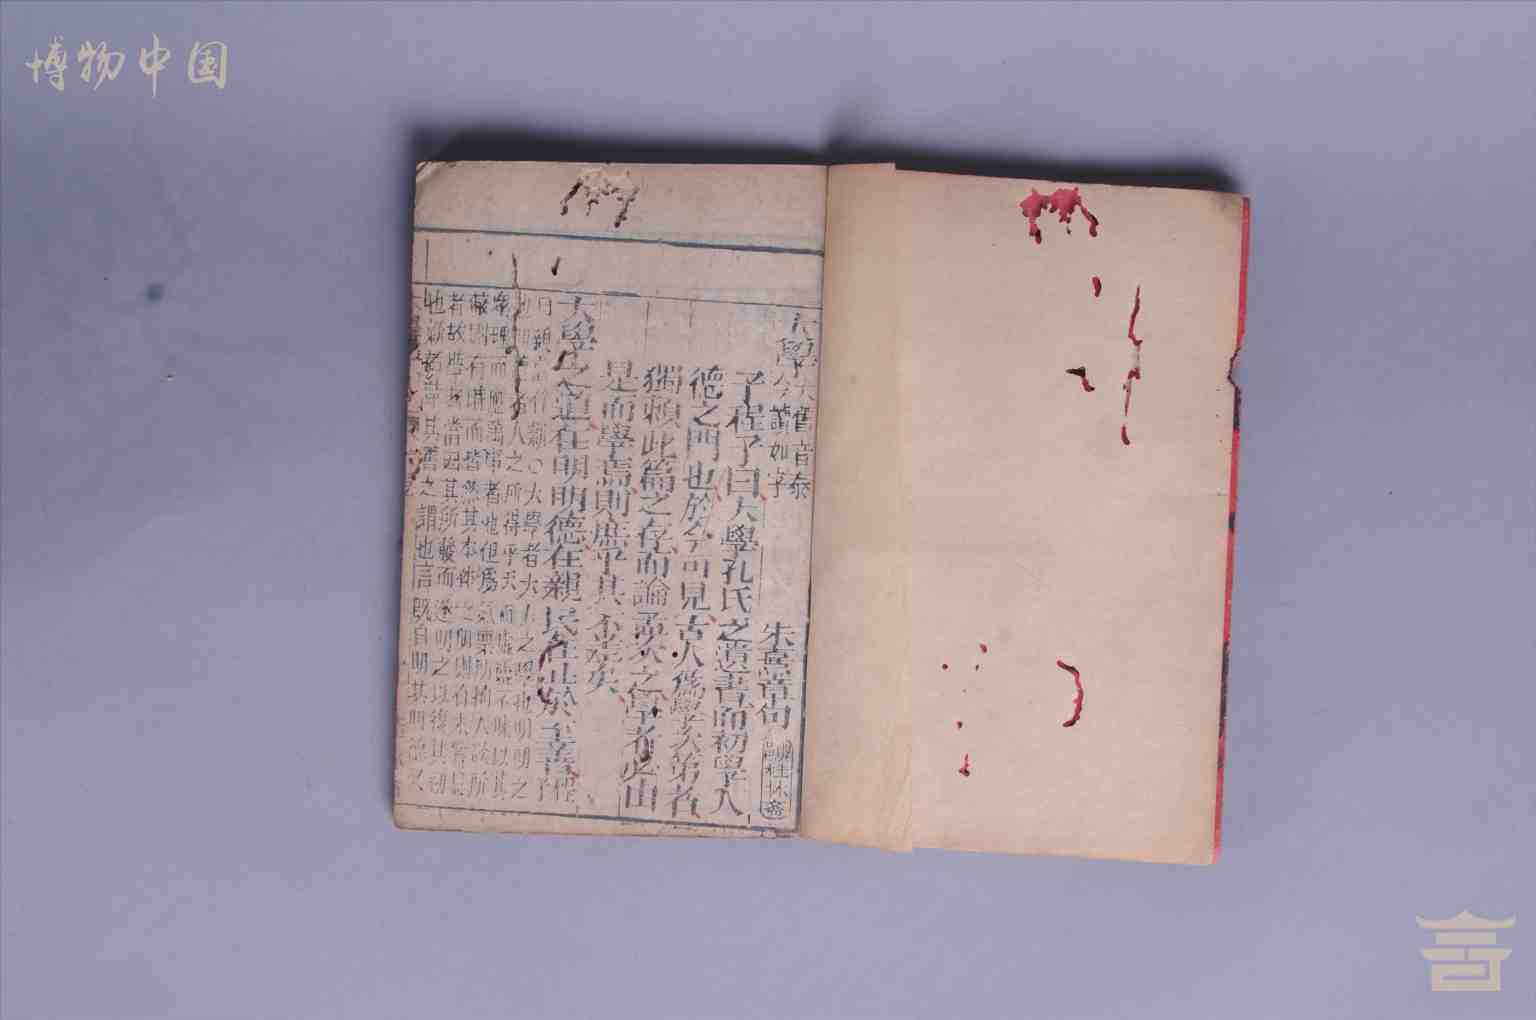 博物中国
大學 大舊音泰
今讀如字
朱熹章句
桂林齋
子程子曰大學孔氏之遺書而初學入
德之門也於今可見古人爲學次第者
獨賴此篇之存而論孟次之學者必由
是而學焉則庶乎其不差矣
大學之道在明明德在親民在止於至善 程子
○大學者大人之學也明明之
人之所得乎天而虛靈不昧以具
衆理而應萬事者也但爲氣稟所拘人欲所
蔽則有時而昏然其本體之明則有未嘗息
者故學者當因其所發而遂明之以復其初
也新者革其舊之謂也言既自明其明德又